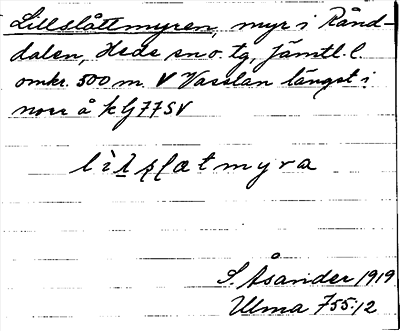 Lillslåttmyren, myr i Rånd-
dalen, Hede sn o. tg, Jämtl. l.
omkr. 500 m. V Vasslan längst i
norr å k G77SV
lìtslætmyra
S. Åsander 1919
Ulma 755:12